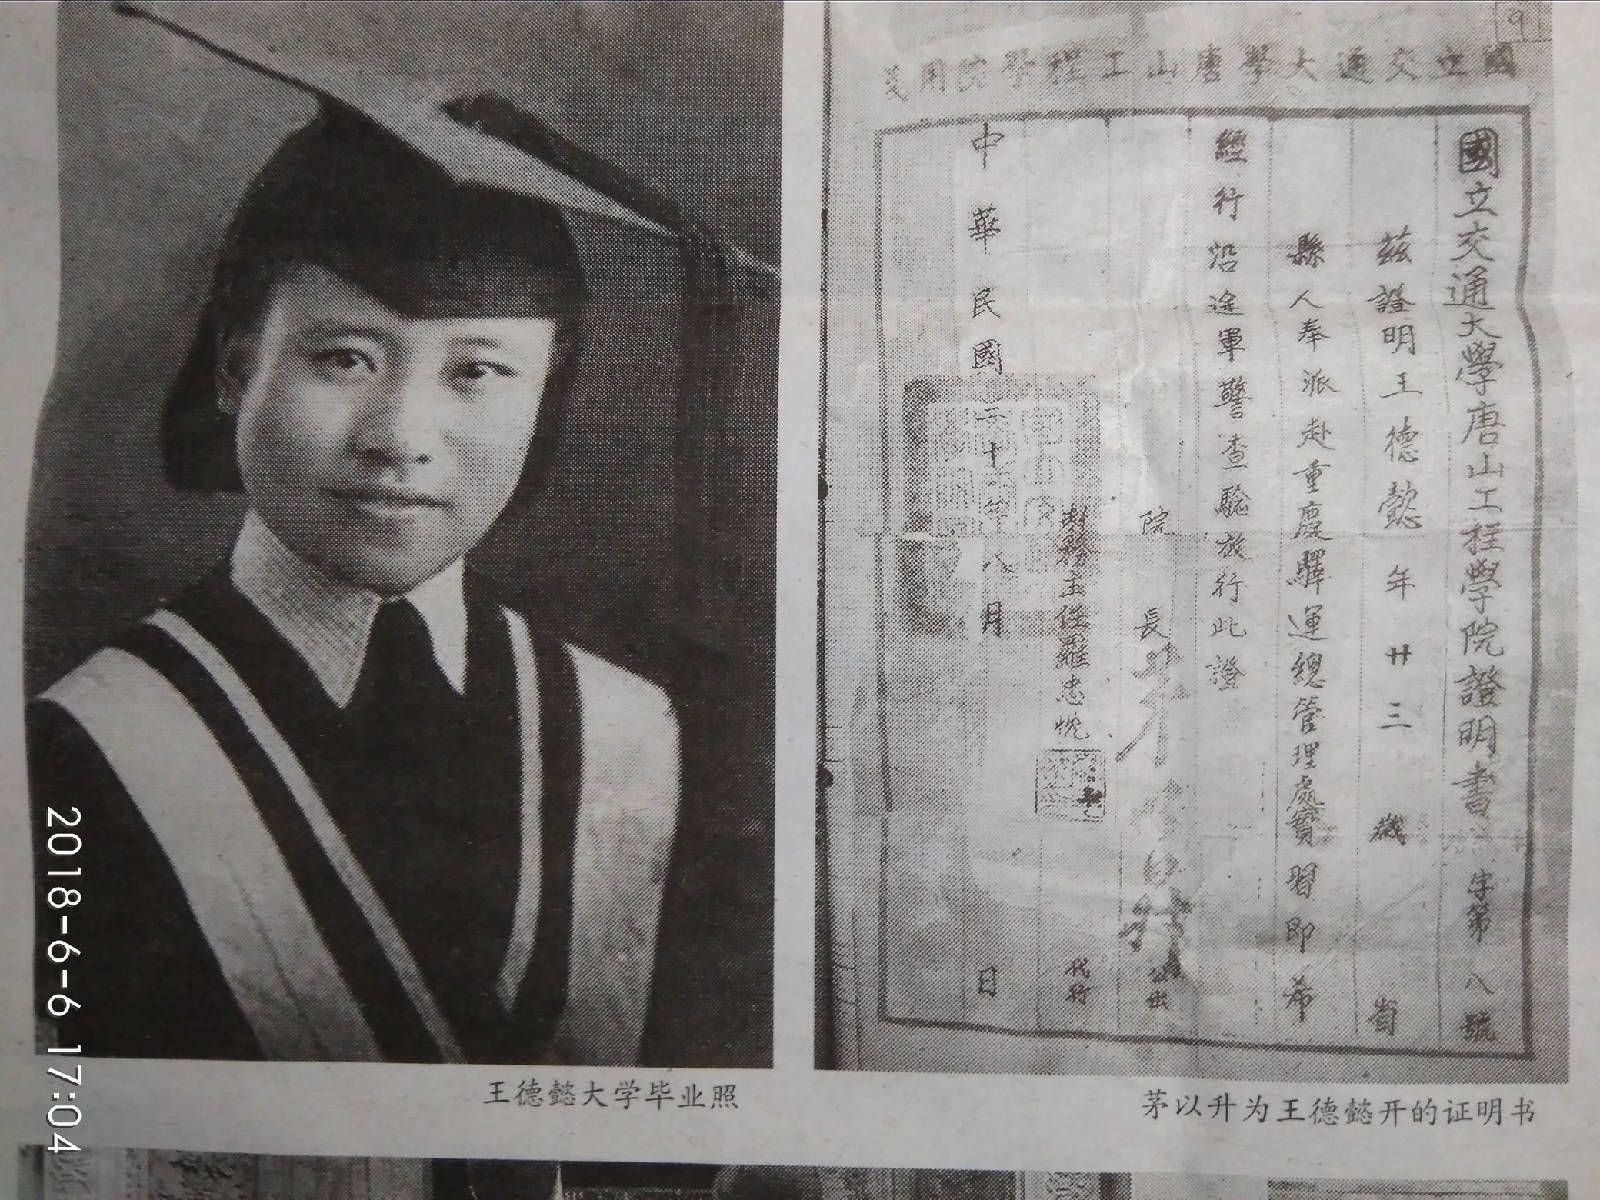 國立交通大學唐山工程學院用笺
國立交通大學唐山工程學院證明書 字第八號
茲證明王德懿年廿三歲 省
縣人奉派赴重慶驛運總管理處實習即希
經行沿途軍警查驗放行此證
院長茅以昇 公出
教務主任羅忠忱 代行
中華民國 十 年八月 日
王德懿大学毕业照
茅以升为王德懿开的证明书
2018-6-6 17:04
9